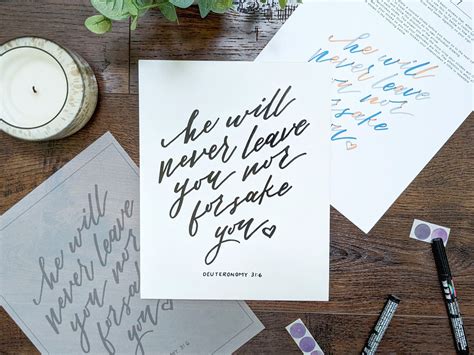 he will
never leave
you nor
forsake
you
DEUTERONOMY 31:6
he will
never leave
you nor
forsake
you
he will
never leave
you nor
forsake
you
DEUTERONOMY 31:6